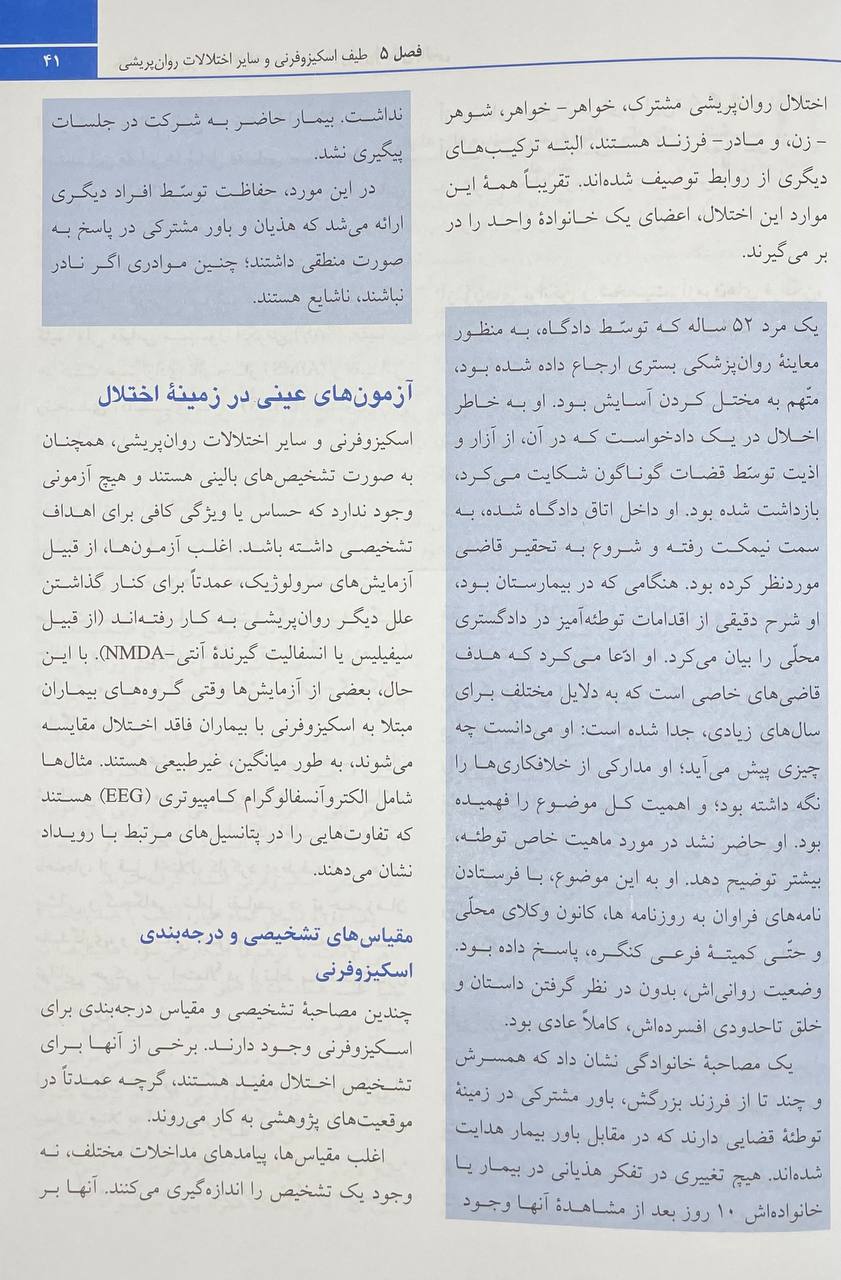 فصل ۵ طیف اسکیزوفرنی و سایر اختلالات روان‌پریشی
۴۱
اختلال روان‌پریشی مشترک، خواهر- خواهر، شوهر
- زن، و مادر- فرزند هستند، البته ترکیب‌های
دیگری از روابط توصیف شده‌اند. تقریباً همهٔ این
موارد این اختلال، اعضای یک خانوادهٔ واحد را در
بر می‌گیرند.
یک مرد ۵۲ ساله که توسّط دادگاه، به منظور
معاینهٔ روان‌پزشکی بستری ارجاع داده شده بود،
متّهم به مختل کردن آسایش بود. او به خاطر
اخلال در یک دادخواست که در آن، از آزار و
اذیت توسّط قضات گوناگون شکایت می‌کرد،
بازداشت شده بود. او داخل اتاق دادگاه شده، به
سمت نیمکت رفته و شروع به تحقیر قاضی
موردنظر کرده بود. هنگامی که در بیمارستان بود،
او شرح دقیقی از اقدامات توطئه‌آمیز در دادگستری
محلّی را بیان می‌کرد. او ادّعا می‌کرد که هدف
قاضی‌های خاصی است که به دلایل مختلف برای
سال‌های زیادی، جدا شده است: او می‌دانست چه
چیزی پیش می‌آید؛ او مدارکی از خلافکاری‌ها را
نگه داشته بود؛ و اهمیت کل موضوع را فهمیده
بود. او حاضر نشد در مورد ماهیت خاص توطئه،
بیشتر توضیح دهد. او به این موضوع، با فرستادن
نامه‌های فراوان به روزنامه ها، کانون وکلای محلّی
و حتّی کمیتهٔ فرعی کنگره، پاسخ داده بود.
وضعیت روانی‌اش، بدون در نظر گرفتن داستان و
خلق تاحدودی افسرده‌اش، کاملاً عادی بود.
یک مصاحبهٔ خانوادگی نشان داد که همسرش
و چند تا از فرزند بزرگش، باور مشترکی در زمینهٔ
توطئهٔ قضایی دارند که در مقابل باور بیمار هدایت
شده‌اند. هیچ تغییری در تفکر هذیانی در بیمار یا
خانواده‌اش ۱۰ روز بعد از مشاهدهٔ آنها وجود
نداشت. بیمار حاضر به شرکت در جلسات
پیگیری نشد.
در این مورد، حفاظت توسّط افراد دیگری
ارائه می‌شد که هذیان و باور مشترکی در پاسخ به
صورت منطقی داشتند؛ چنین موادری اگر نادر
نباشند، ناشایع هستند.
آزمون‌های عینی در زمینهٔ اختلال
اسکیزوفرنی و سایر اختلالات روان‌پریشی، همچنان
به صورت تشخیص‌های بالینی هستند و هیچ آزمونی
وجود ندارد که حساس یا ویژگی کافی برای اهداف
تشخیصی داشته باشد. اغلب آزمون‌ها، از قبیل
آزمایش‌های سرولوژیک، عمدتاً برای کنار گذاشتن
علل دیگر روان‌پریشی به کار رفته‌اند (از قبیل
سیفیلیس یا انسفالیت گیرندهٔ آنتی-NMDA). با این
حال، بعضی از آزمایش‌ها وقتی گروه‌های بیماران
مبتلا به اسکیزوفرنی با بیماران فاقد اختلال مقایسه
می‌شوند، به طور میانگین، غیرطبیعی هستند. مثال‌ها
شامل الکتروآنسفالوگرام کامپیوتری (EEG) هستند
که تفاوت‌هایی را در پتانسیل‌های مرتبط با رویداد
نشان می‌دهند.
مقیاس‌های تشخیصی و درجه‌بندی
اسکیزوفرنی
چندین مصاحبهٔ تشخیصی و مقیاس درجه‌بندی برای
اسکیزوفرنی وجود دارند. برخی از آنها برای
تشخیص اختلال مفید هستند، گرچه عمدتاً در
موقعیت‌های پژوهشی به کار می‌روند.
اغلب مقیاس‌ها، پیامدهای مداخلات مختلف، نه
وجود یک تشخیص را اندازه‌گیری می‌کنند. آنها بر